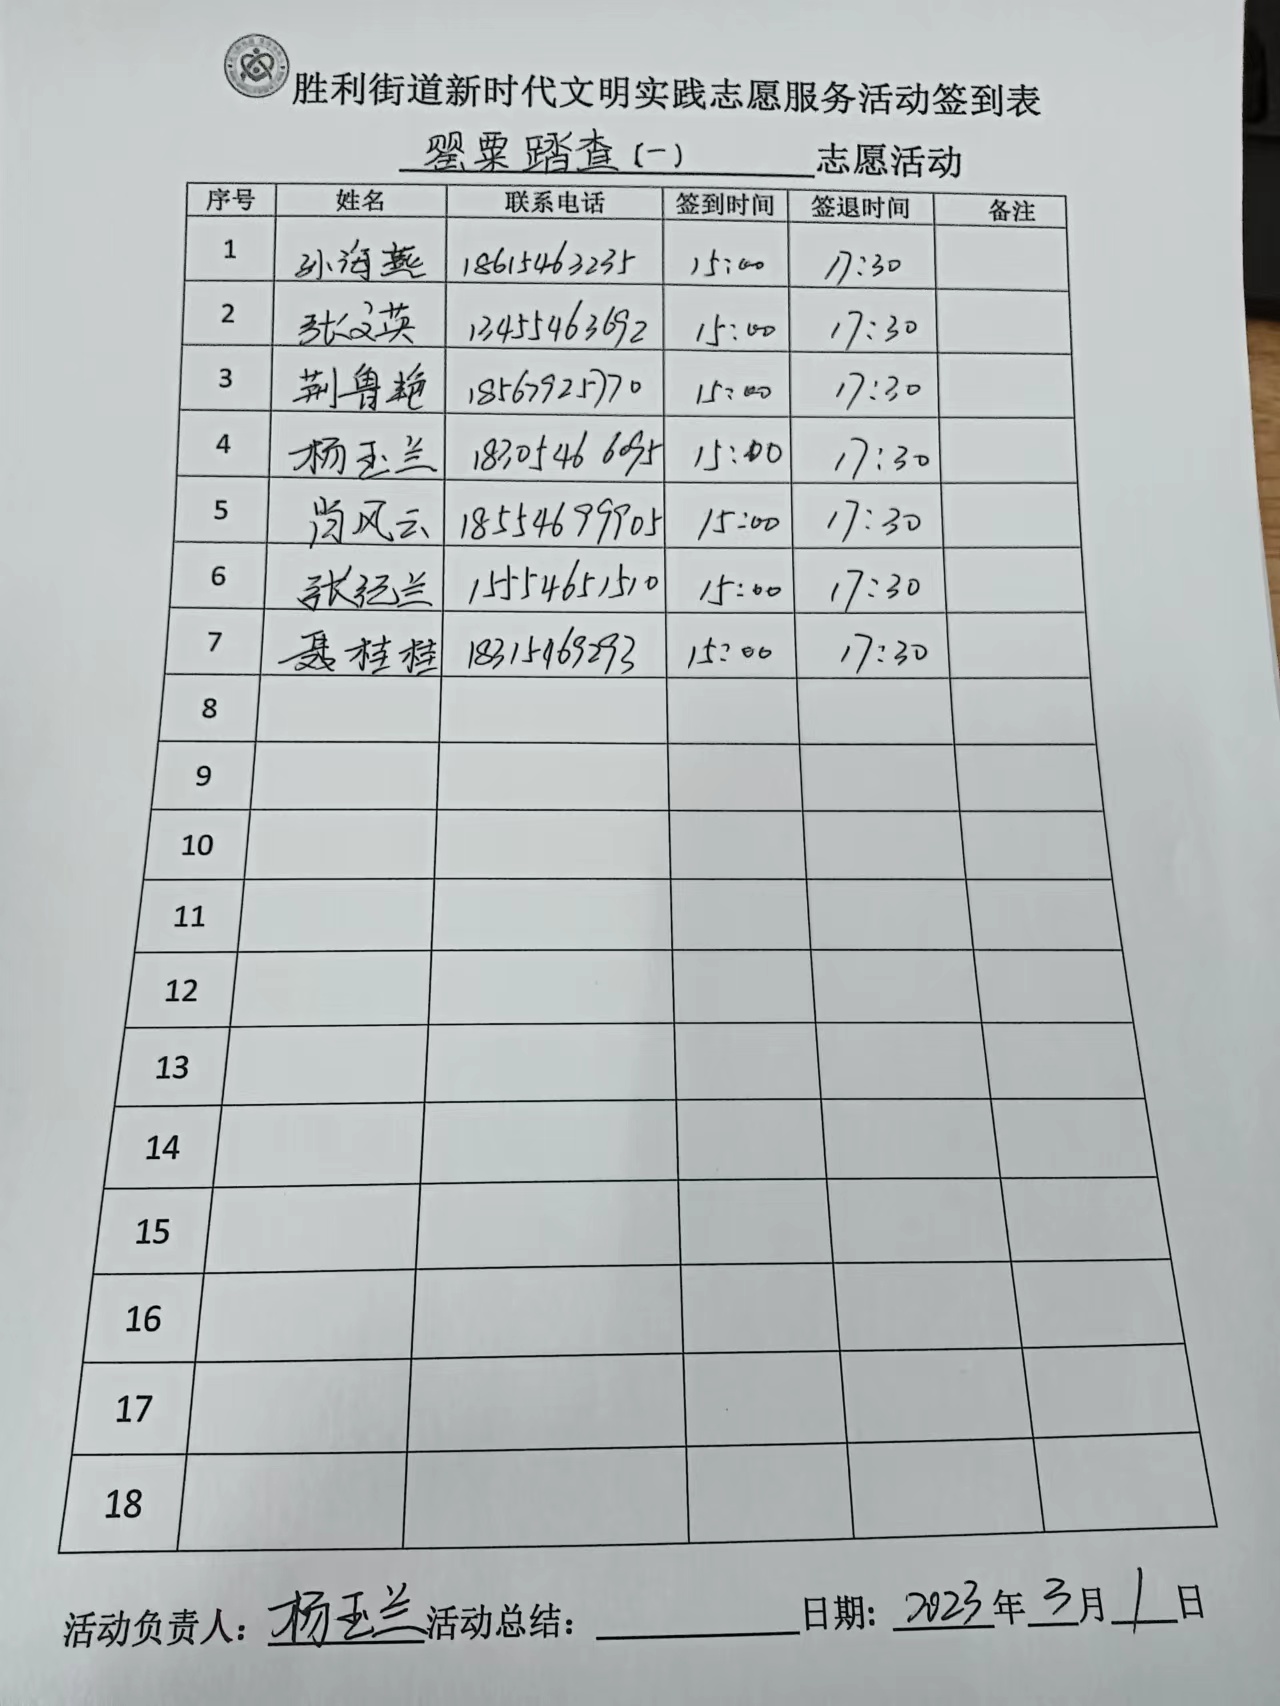 胜利街道新时代文明实践志愿服务活动签到表
罂粟踏查(一) 志愿活动
序号 姓名 联系电话 签到时间 签退时间 备注
1 孙海燕 18615463235 15:00 17:30
2 张文英 13455463692 15:00 17:30
3 荆鲁艳 18567925770 15:00 17:30
4 杨玉兰 18305466695 15:00 17:30
5 尚风云 18554699905 15:00 17:30
6 张纪兰 15554651510 15:00 17:30
7 聂桂桂 18315469293 15:00 17:30
8
9
10
11
12
13
14
15
16
17
18
活动负责人: 杨玉兰 活动总结: 日期: 2023年3月1日